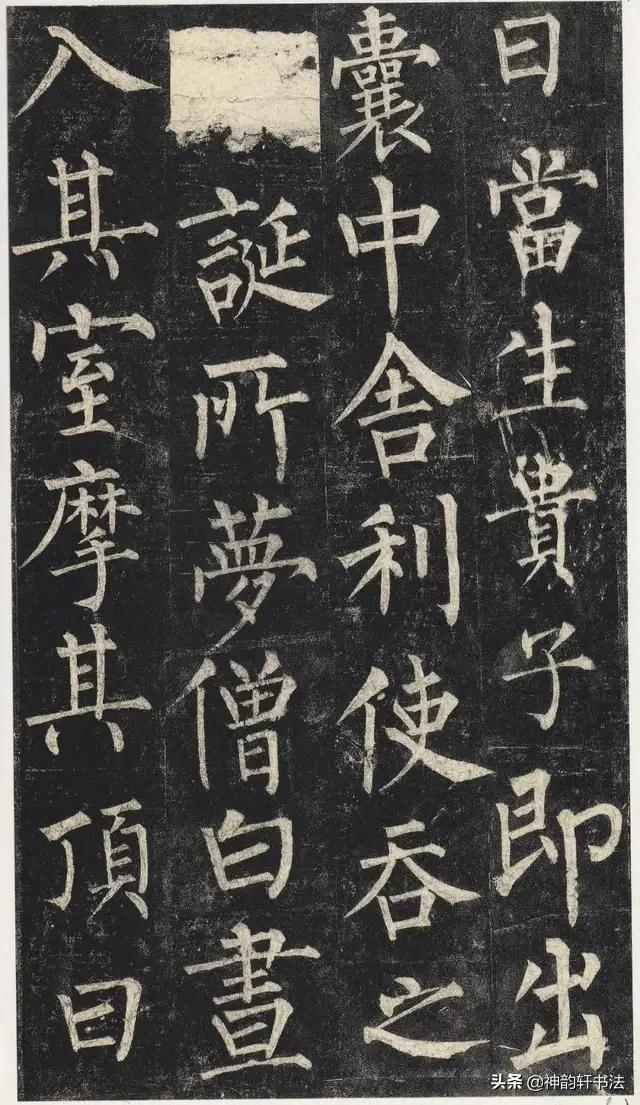 曰當生貴子即出
囊中舍利使吞之
誕所夢僧白晝
入其室摩其頂曰
头条 @神韵轩书法